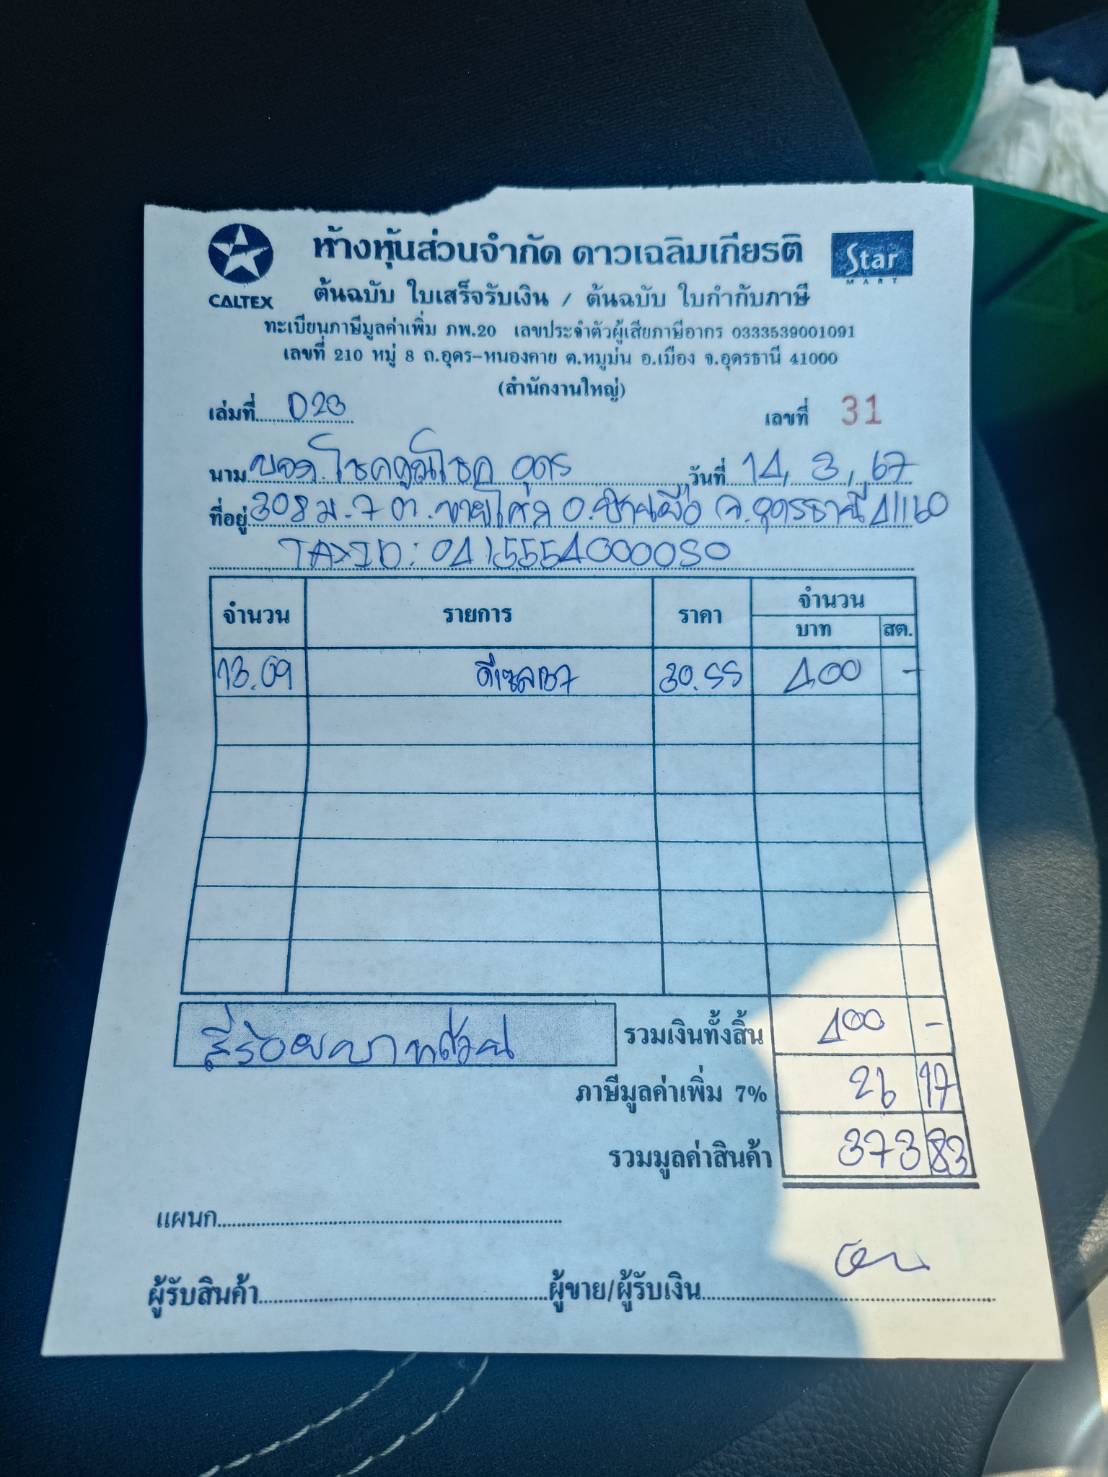 ห้างหุ้นส่วนจำกัด ดาวเฉลิมเกียรติ
Star
MART
CALTEX
ต้นฉบับ ใบเสร็จรับเงิน / ต้นฉบับ ใบกำกับภาษี
ทะเบียนภาษีมูลค่าเพิ่ม ภพ.20 เลขประจำตัวผู้เสียภาษีอากร 0333539001091
เลขที่ 210 หมู่ 8 ถ.อุดร-หนองคาย ต.หมูม่น อ.เมือง จ.อุดรธานี 41000
(สำนักงานใหญ่)
เล่มที่ 023 เลขที่ 31
นาม บจก. โชคคูณโชค อุดร วันที่ 14, 3, 67
ที่อยู่ 308 ม.7 ต. อ. จ.อุดรธานี 41160
TAXID: 0415554000080
จำนวน รายการ ราคา จำนวน
บาท สต.
13.09 ดีเซลB7 30.55 400 -
สี่ร้อยบาทถ้วน รวมเงินทั้งสิ้น 400 -
ภาษีมูลค่าเพิ่ม 7% 26 17
รวมมูลค่าสินค้า 373 83
แผนก
ผู้รับสินค้า ผู้ขาย/ผู้รับเงิน